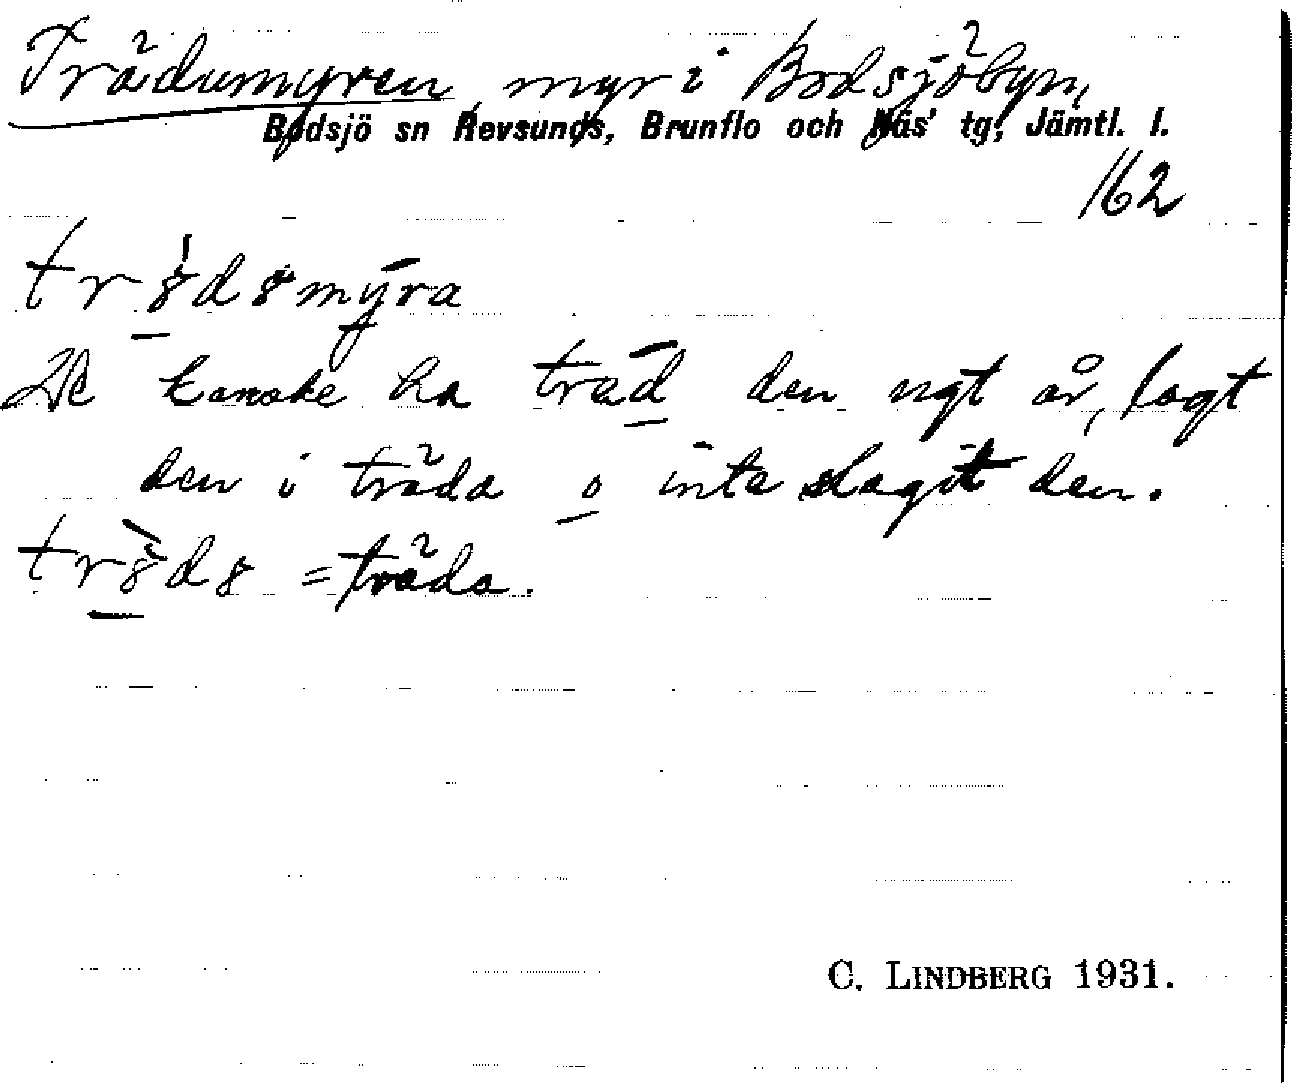 Trädumyren, myr i Bodsjöbyn,
Bodsjö sn Revsunds, Brunflo och Näs' tg, Jämtl. l.
162
De kanske ha träd den ngt år, lagt
den i träda o inte slagit den.
= träda.
C. LINDBERG 1931.